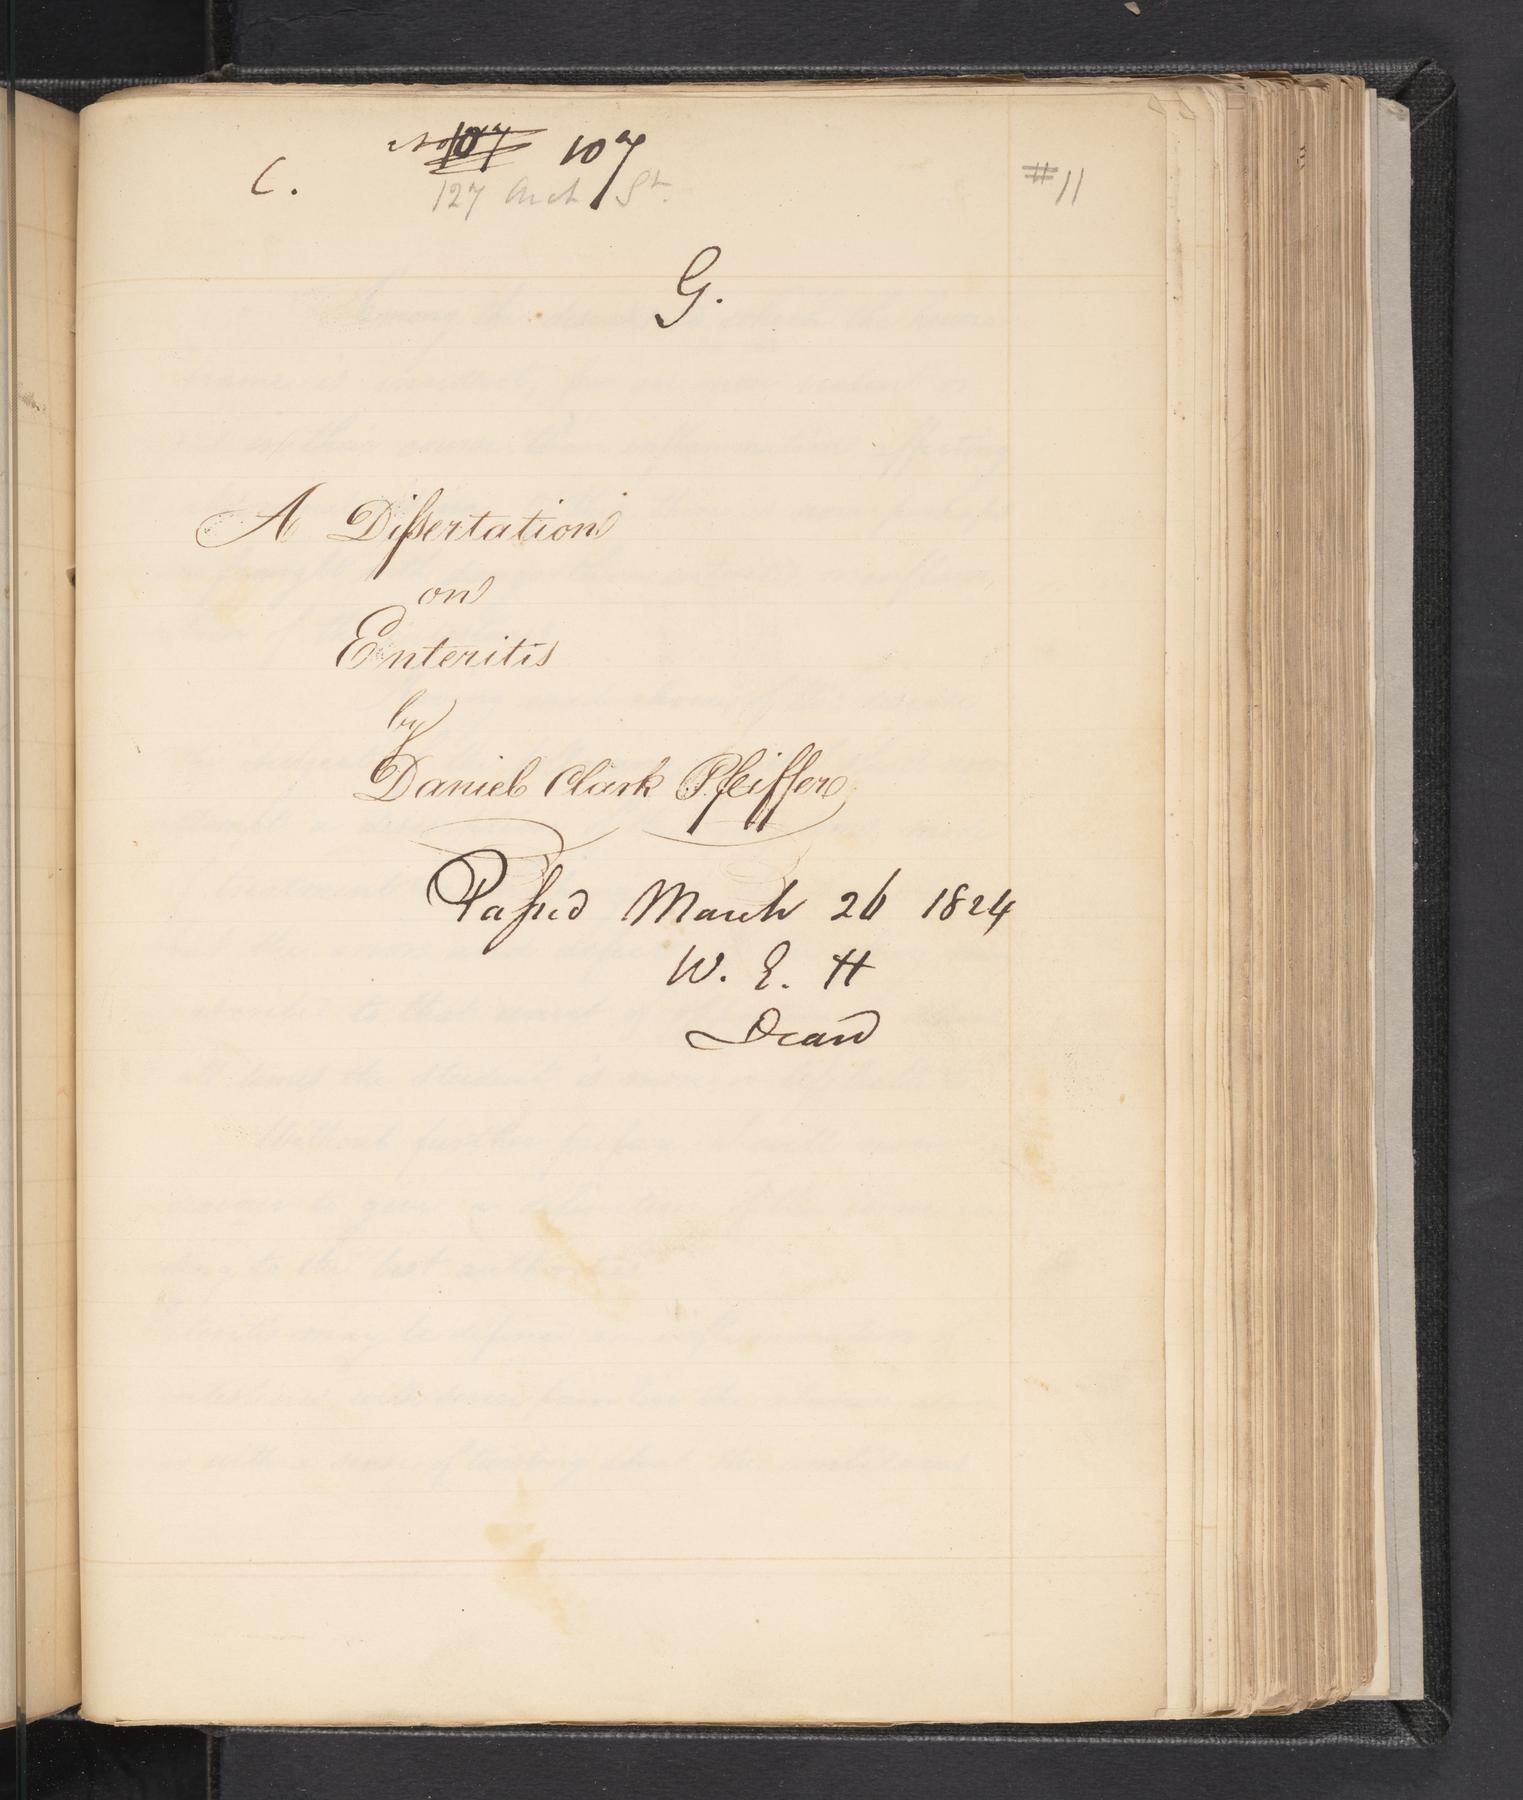 C. No 107 107 #11
127 Arch St.
G.
A Dissertation
on
Enteritis
by
Daniel Clark Pfeiffer
Passed March 26 1824
W. E. H
Dean